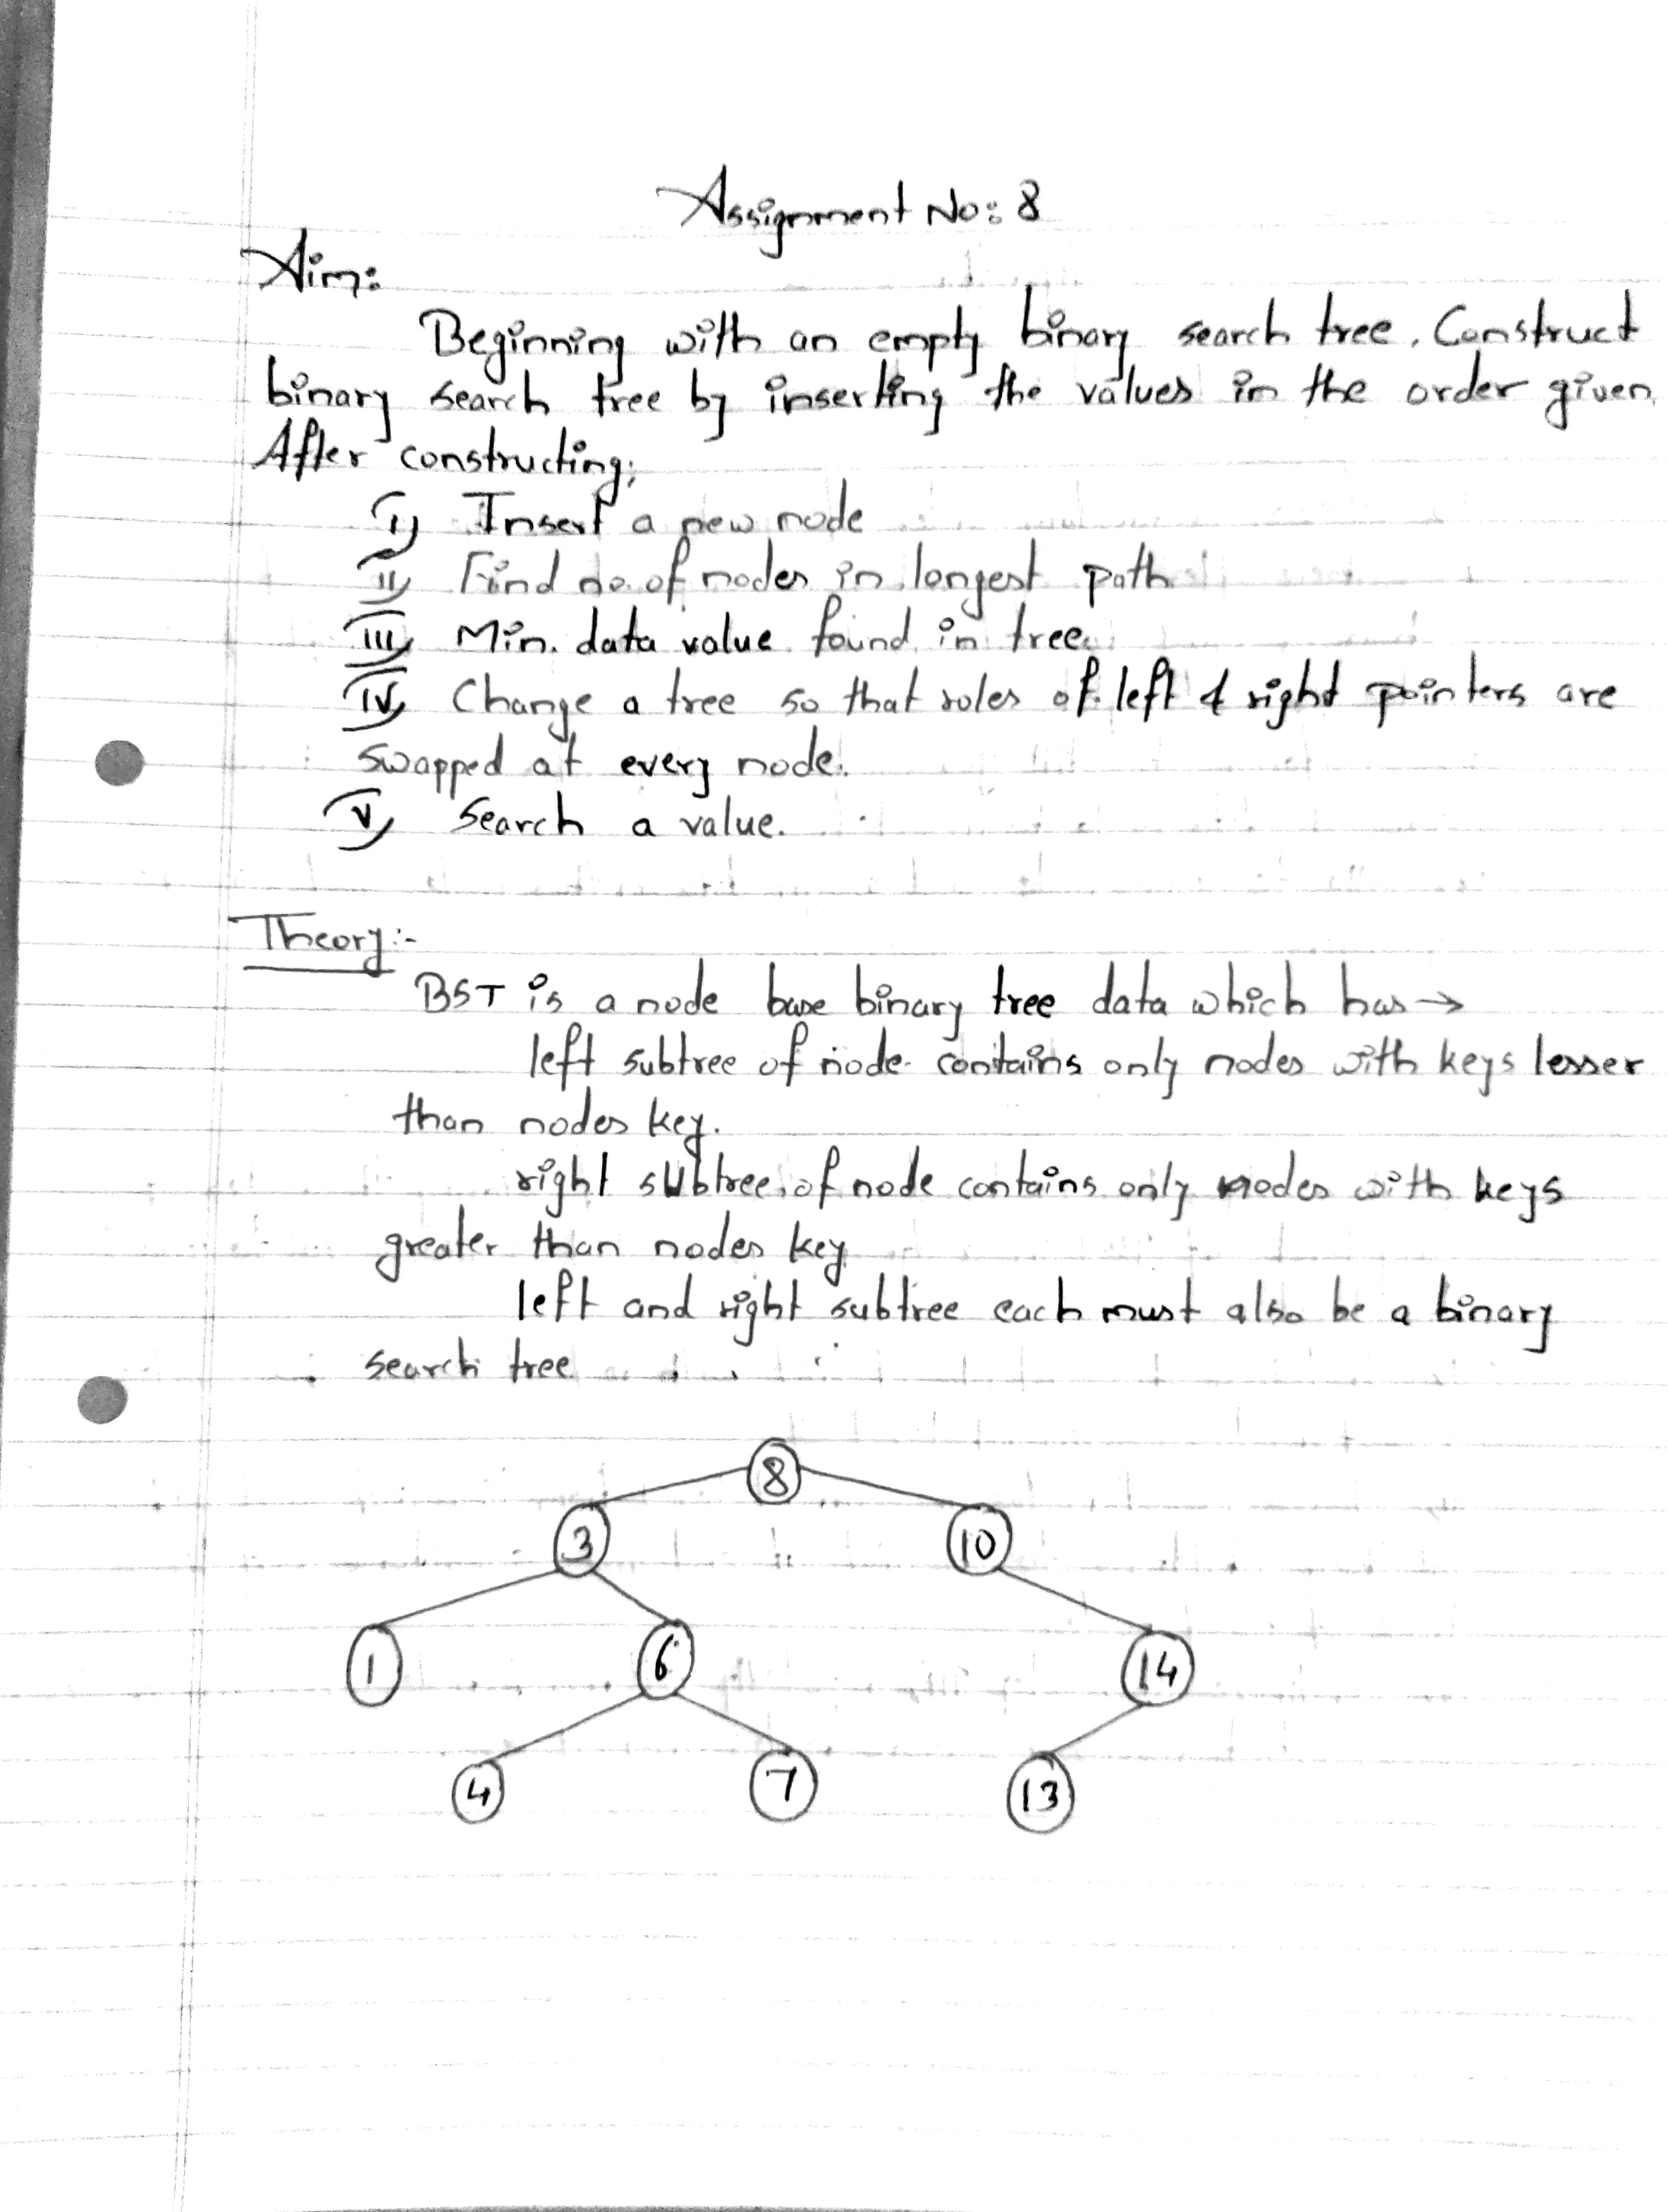 Assignment No: 8
Aim:
Beginning with an empty binary search tree. Construct
binary search tree by inserting the values in the order given.
After constructing;
i) Insert a new node
ii) Find no. of nodes in longest path
iii) Min. data value found in tree.
iv) Change a tree so that roles of left & right pointers are
swapped at every node.
v) Search a value.
Theory:-
BST is a node base binary tree data which has →
left subtree of node contains only nodes with keys lesser
than nodes key.
right subtree of node contains only nodes with keys
greater than nodes key
left and right subtree each must also be a binary
search tree
8
3 10
1 6 14
4 7 13